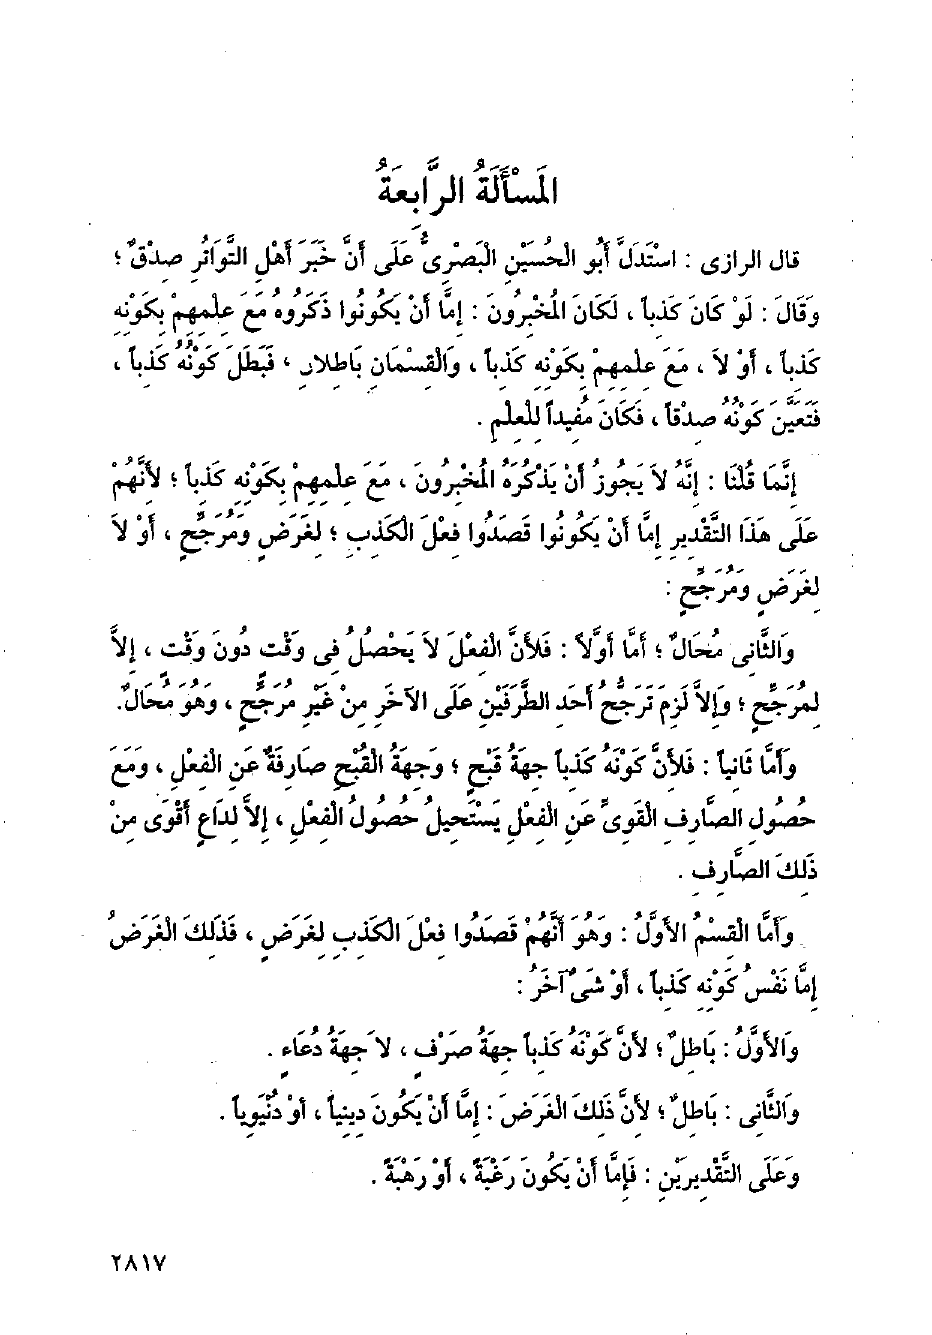 المَسْأَلَةُ الرَّابِعَةُ
قال الرازى : اسْتَدَلَّ أَبُو الحُسَيْنِ البَصْرِىُّ عَلَى أَنَّ خَبَرَ أَهْلِ التَّوَاتُرِ صِدْقٌ ؛
وَقَالَ : لَوْ كَانَ كَذِباً ، لَكَانَ المُخْبِرُونَ : إِمَّا أَنْ يَكُونُوا ذَكَرُوهُ مَعَ عِلْمِهِمْ بِكَوْنِهِ
كَذِباً ، أَوْ لاَ ، مَعَ عِلْمِهِمْ بِكَوْنِهِ كَذِباً ، وَالْقِسْمَانِ بَاطِلانِ ، فَبَطَلَ كَوْنُهُ كَذِباً ،
فَتَعَيَّنَ كَوْنُهُ صِدْقاً ، فَكَانَ مُفِيداً لِلْعِلْمِ .
إِنَّمَا قُلْنَا : إِنَّهُ لاَ يَجُوزُ أَنْ يَذْكُرَهُ المُخْبِرُونَ ، مَعَ عِلْمِهِمْ بِكَوْنِهِ كَذِباً ؛ لأَنَّهُمْ
عَلَى هَذَا التَّقْدِيرِ إِمَّا أَنْ يَكُونُوا قَصَدُوا فِعْلَ الْكَذِبِ ؛ لِغَرَضٍ وَمُرَجِّحٍ ، أَوْ لاَ
لِغَرَضٍ وَمُرَجِّحٍ :
وَالثَّانِى مُحَالٌ ؛ أَمَّا أَوَّلاً : فَلأَنَّ الْفِعْلَ لاَ يَحْصُلُ فِى وَقْتٍ دُونَ وَقْتٍ ، إِلاَّ
لِمُرَجِّحٍ ؛ وَإِلاَّ لَزِمَ تَرَجُّحُ أَحَدِ الطَّرَفَيْنِ عَلَى الآخَرِ مِنْ غَيْرِ مُرَجِّحٍ ، وَهُوَ مُحَالٌ.
وَأَمَّا ثَانِياً : فَلأَنَّ كَوْنَهُ كَذِباً جِهَةُ قُبْحٍ ؛ وَجِهَةُ الْقُبْحِ صَارِفَةٌ عَنِ الْفِعْلِ ، وَمَعَ
حُصُولِ الصَّارِفِ الْقَوِىِّ عَنِ الْفِعْلِ يَسْتَحِيلُ حُصُولُ الْفِعْلِ ، إِلاَّ لِدَاعٍ أَقْوَى مِنْ
ذَلِكَ الصَّارِفِ .
وَأَمَّا الْقِسْمُ الأَوَّلُ : وَهُوَ أَنَّهُمْ قَصَدُوا فِعْلَ الْكَذِبِ لِغَرَضٍ ، فَذَلِكَ الْغَرَضُ
إِمَّا نَفْسُ كَوْنِهِ كَذِباً ، أَوْ شَىْءٌ آخَرُ :
وَالأَوَّلُ : بَاطِلٌ ؛ لأَنَّ كَوْنَهُ كَذِباً جِهَةُ صَرْفٍ ، لاَ جِهَةُ دُعَاءٍ .
وَالثَّانِى : بَاطِلٌ ؛ لأَنَّ ذَلِكَ الْغَرَضَ : إِمَّا أَنْ يَكُونَ دِينِياً ، أَوْ دُنْيَوِياً .
وَعَلَى التَّقْدِيرَيْنِ : فَإِمَّا أَنْ يَكُونَ رَغْبَةً ، أَوْ رَهْبَةً .
٢٨١٧